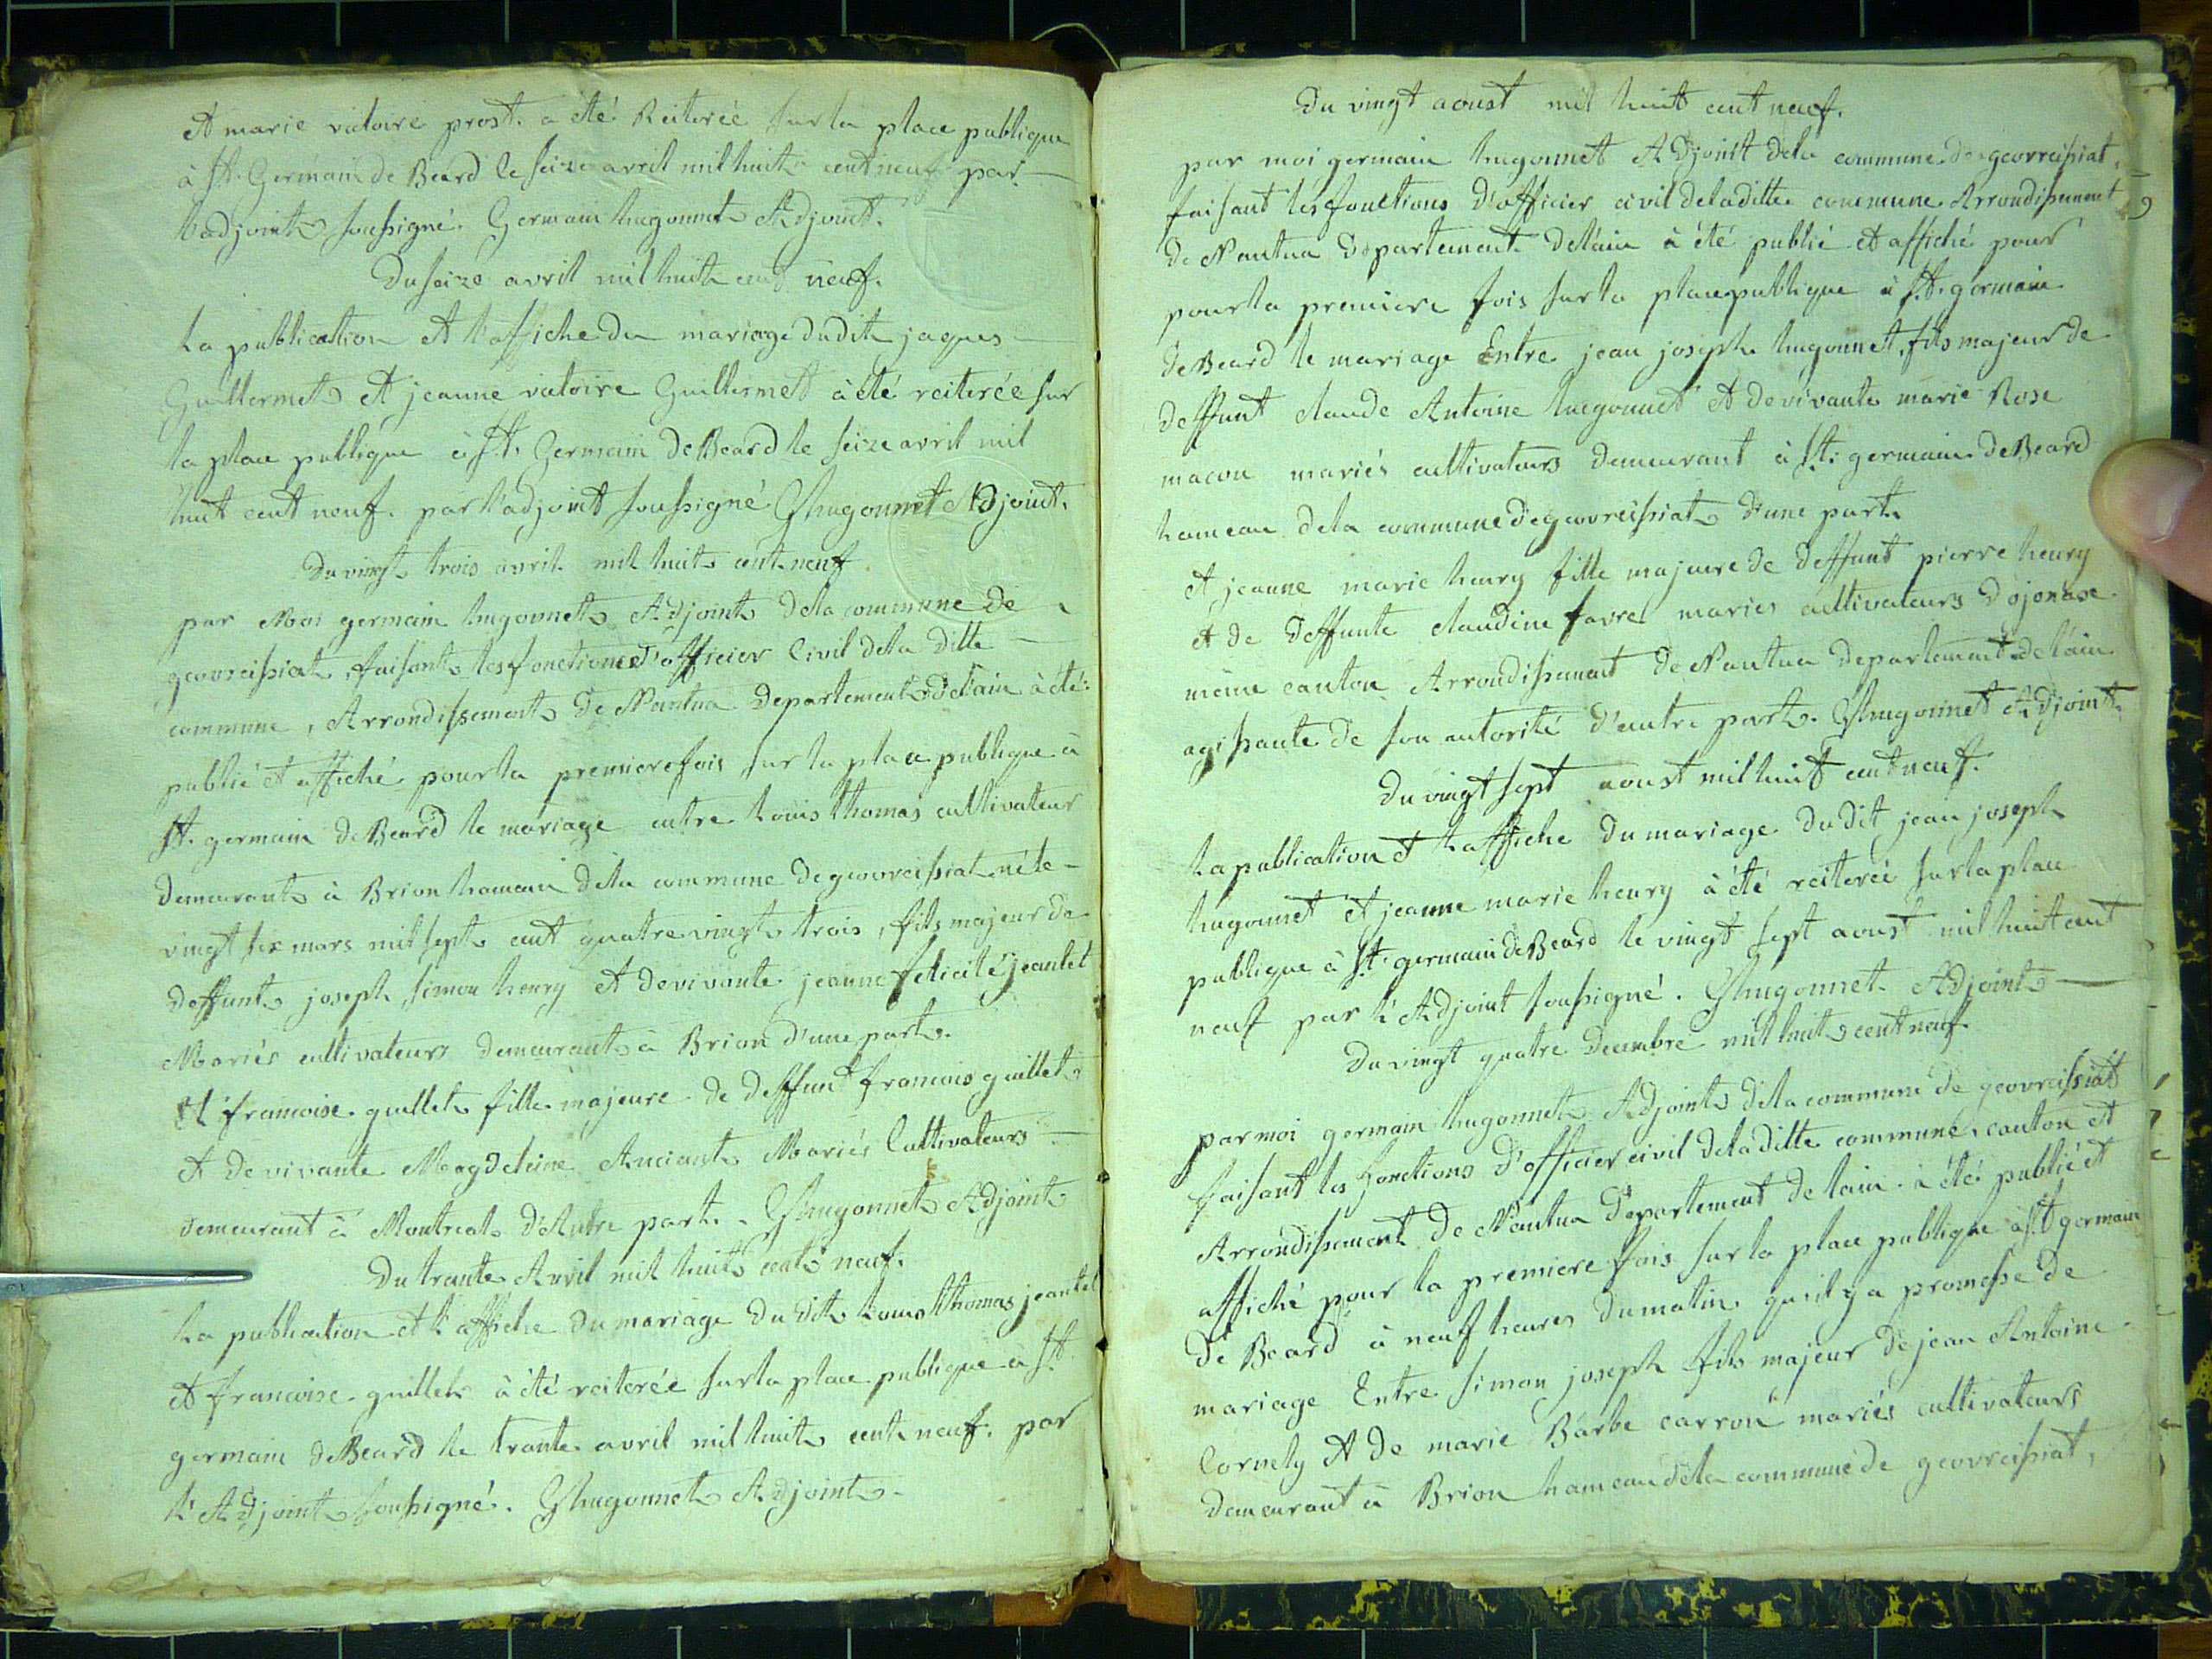 Et marie victoire prost. a été Reiterée sur la place publique
à St. Germain de Beard le seize avril mil huit cent neuf par
l'adjoint soussigné. Germain hugonnet Adjoint.
Du seize avril mil huit cent neuf.
La publication et l'affiche du mariage dudit jaques
Guillermet et jeanne victoire Guillermet à été reiterée sur
la place publique à St. Germain de Beard le seize avril mil
huit cent neuf. par l'adjoint soussigné GHugonnet Adjoint.
Du vingt trois avril mil huit cent neuf
par Moi germain hugonnet Adjoint de la commune de
geovreissiat, faisant les fonctions d'officier Civil de la ditte
commune, Arrondissement de Nantua Departement de l'ain à été
publié et affiché pour la premiere fois sur la place publique à
St. germain de Beard le mariage entre Louis thomas cultivateur
demeurant à Brion hameau de la commune de geovreissiat né le
vingt six mars mil sept cent quatre vingt trois, fils majeur de
deffunt joseph simon henry et de vivante jeanne felicité jeantet
Mariés cultivateurs demeurant à Brion d'une part.
Et francoise guillet fille majeure de deffunt francois guillet
et de vivante Magdeleine Anciant Mariés Cultivateurs
demeurant à Montreal d'Autre part. GHugonnet Adjoint
Du trante Avril mil huit cent neuf.
La publication et l'affiche du mariage du dit Louis thomas jeantet
et francoise guillet à été reiterée sur la place publique à St.
germain de Beard le trante avril mil huit cent neuf. par
l'Adjoint soussigné. GHugonnet Adjoint.
Du vingt aoust mil huit cent neuf.
par moi germain hugonnet Adjoint de la commune de geovreissiat,
faisant les fonctions d'officier civil de la ditte commune Arrondissement
de Nantua Departement de l'ain à été publié et affiché pour
pour la premiere fois sur la place publique à St. germain
de Beard le mariage Entre jean joseph hugonnet, fils majeur de
deffunt claude Antoine hugonnet et de vivante marie Rose
macon mariés cultivateurs demeurant à St. germain de Beard
hameau de la commune de geovreissiat d'une part.
et jeanne marie henry fille majeure de deffunt pierre henry
et de deffunte claudine favre mariés cultivateurs d'ojonase
même canton Arrondissement de Nantua departement de l'ain
agissante de son autorité d'autre part. GHugonnet Adjoint.
Du vingt sept aoust mil huit cent neuf.
La publication et l'affiche du mariage du dit jean joseph
hugonnet et jeanne marie henry à été reiterée sur la place
publique à St. germain de Beard le vingt sept aoust mil huit cent
neuf par l'Adjoint soussigné. GHugonnet Adjoint
Du vingt quatre decembre mil huit cent neuf.
par moi germain hugonnet Adjoint de la commune de geovreissiat
faisant les fonctions d'officier civil de la ditte commune, canton et
Arrondissement de Nantua Departement de l'ain à été publié et
affiché pour la premiere fois sur la place publique à St. germain
de Beard à neuf heures du matin qu'il y a promesse de
mariage Entre simon joseph fils majeur de jean Antoine
Cornely et de marie Barbe carron mariés cultivateurs
demeurant à Brion hameau de la commune de geovreissiat,